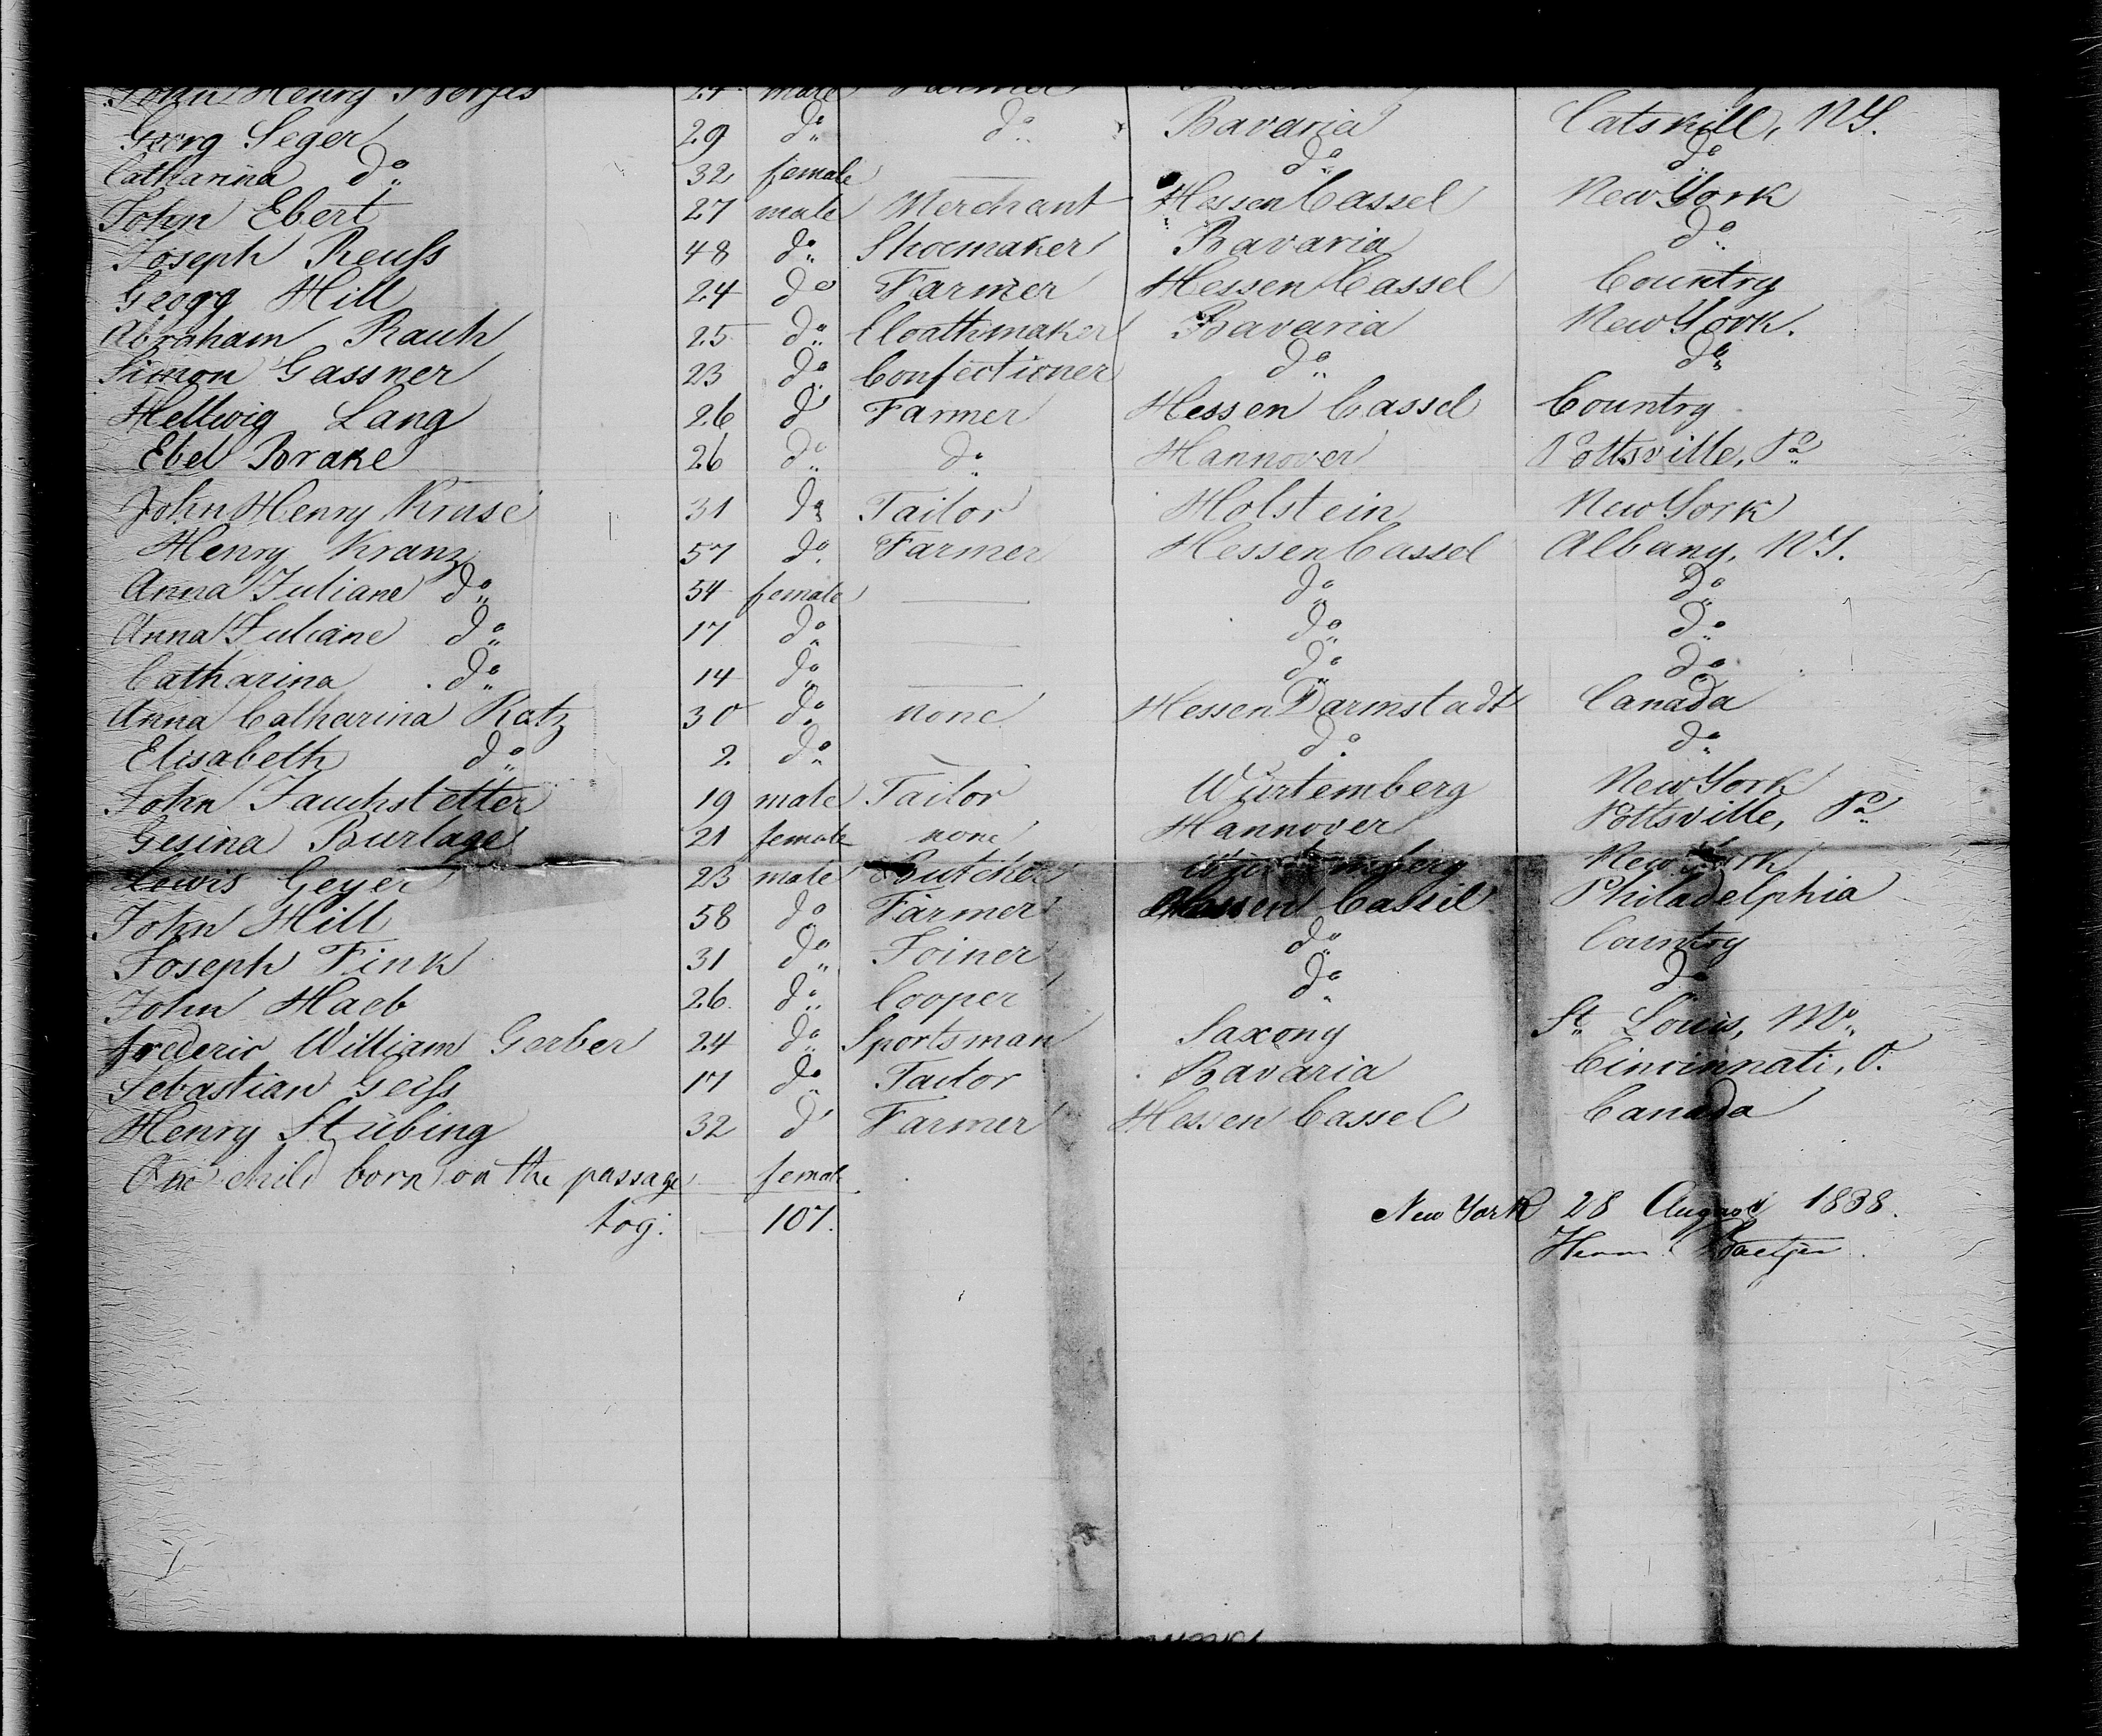 John Henry 24 male Farmer
Georg Seger 29 do do Bavaria Catskill, NY.
Catharina do 32 female — do do
John Ebert 27 male Merchant Hessen Cassel New York
Joseph Reuſs 48 do Shoemaker Bavaria do
Georg Hill 24 do Farmer Hessen Cassel Country
Abraham Rauh 25 do Cloathmaker Bavaria New York.
Simon Gassner 23 do Confectioner do do
Hellwig Lang 26 do Farmer Hessen Cassel Country
Ebel Brake 26 do do Hannover Pottsville, Pa
John Henry Kruse 31 do Tailor Holstein New York
Henry Kranz 57 do Farmer Hessen Cassel Albany, NY.
Anna Juliane do 54 female — do do
Anna Juliane do 17 do — do do
Catharina do 14 do — do do
Anna Catharina Katz 30 do none Hessen Darmstadt Canada
Elisabeth do 2 do — do do
John Jauchstetter 19 male Tailor Würtemberg New York
Gesina Burlage 21 female none Hannover Pottsville, Pa
Lewis Geyer 23 male Butcher Würtemberg New York
John Hill 58 do Farmer Hessen Cassel Philadelphia
Joseph Fink 31 do Joiner do Country
John Haeb 26 do Cooper do do
Frederic William Gerber 24 do Sportsman Saxony St. Louis, Mo
Sebastian Geiſs 17 do Tailor Bavaria Cincinnati, O.
Henry Stübing 32 do Farmer Hessen Cassel Canada
One child born on the passage — female
tog: — 107.
New York 28 August 1838.
Herm.